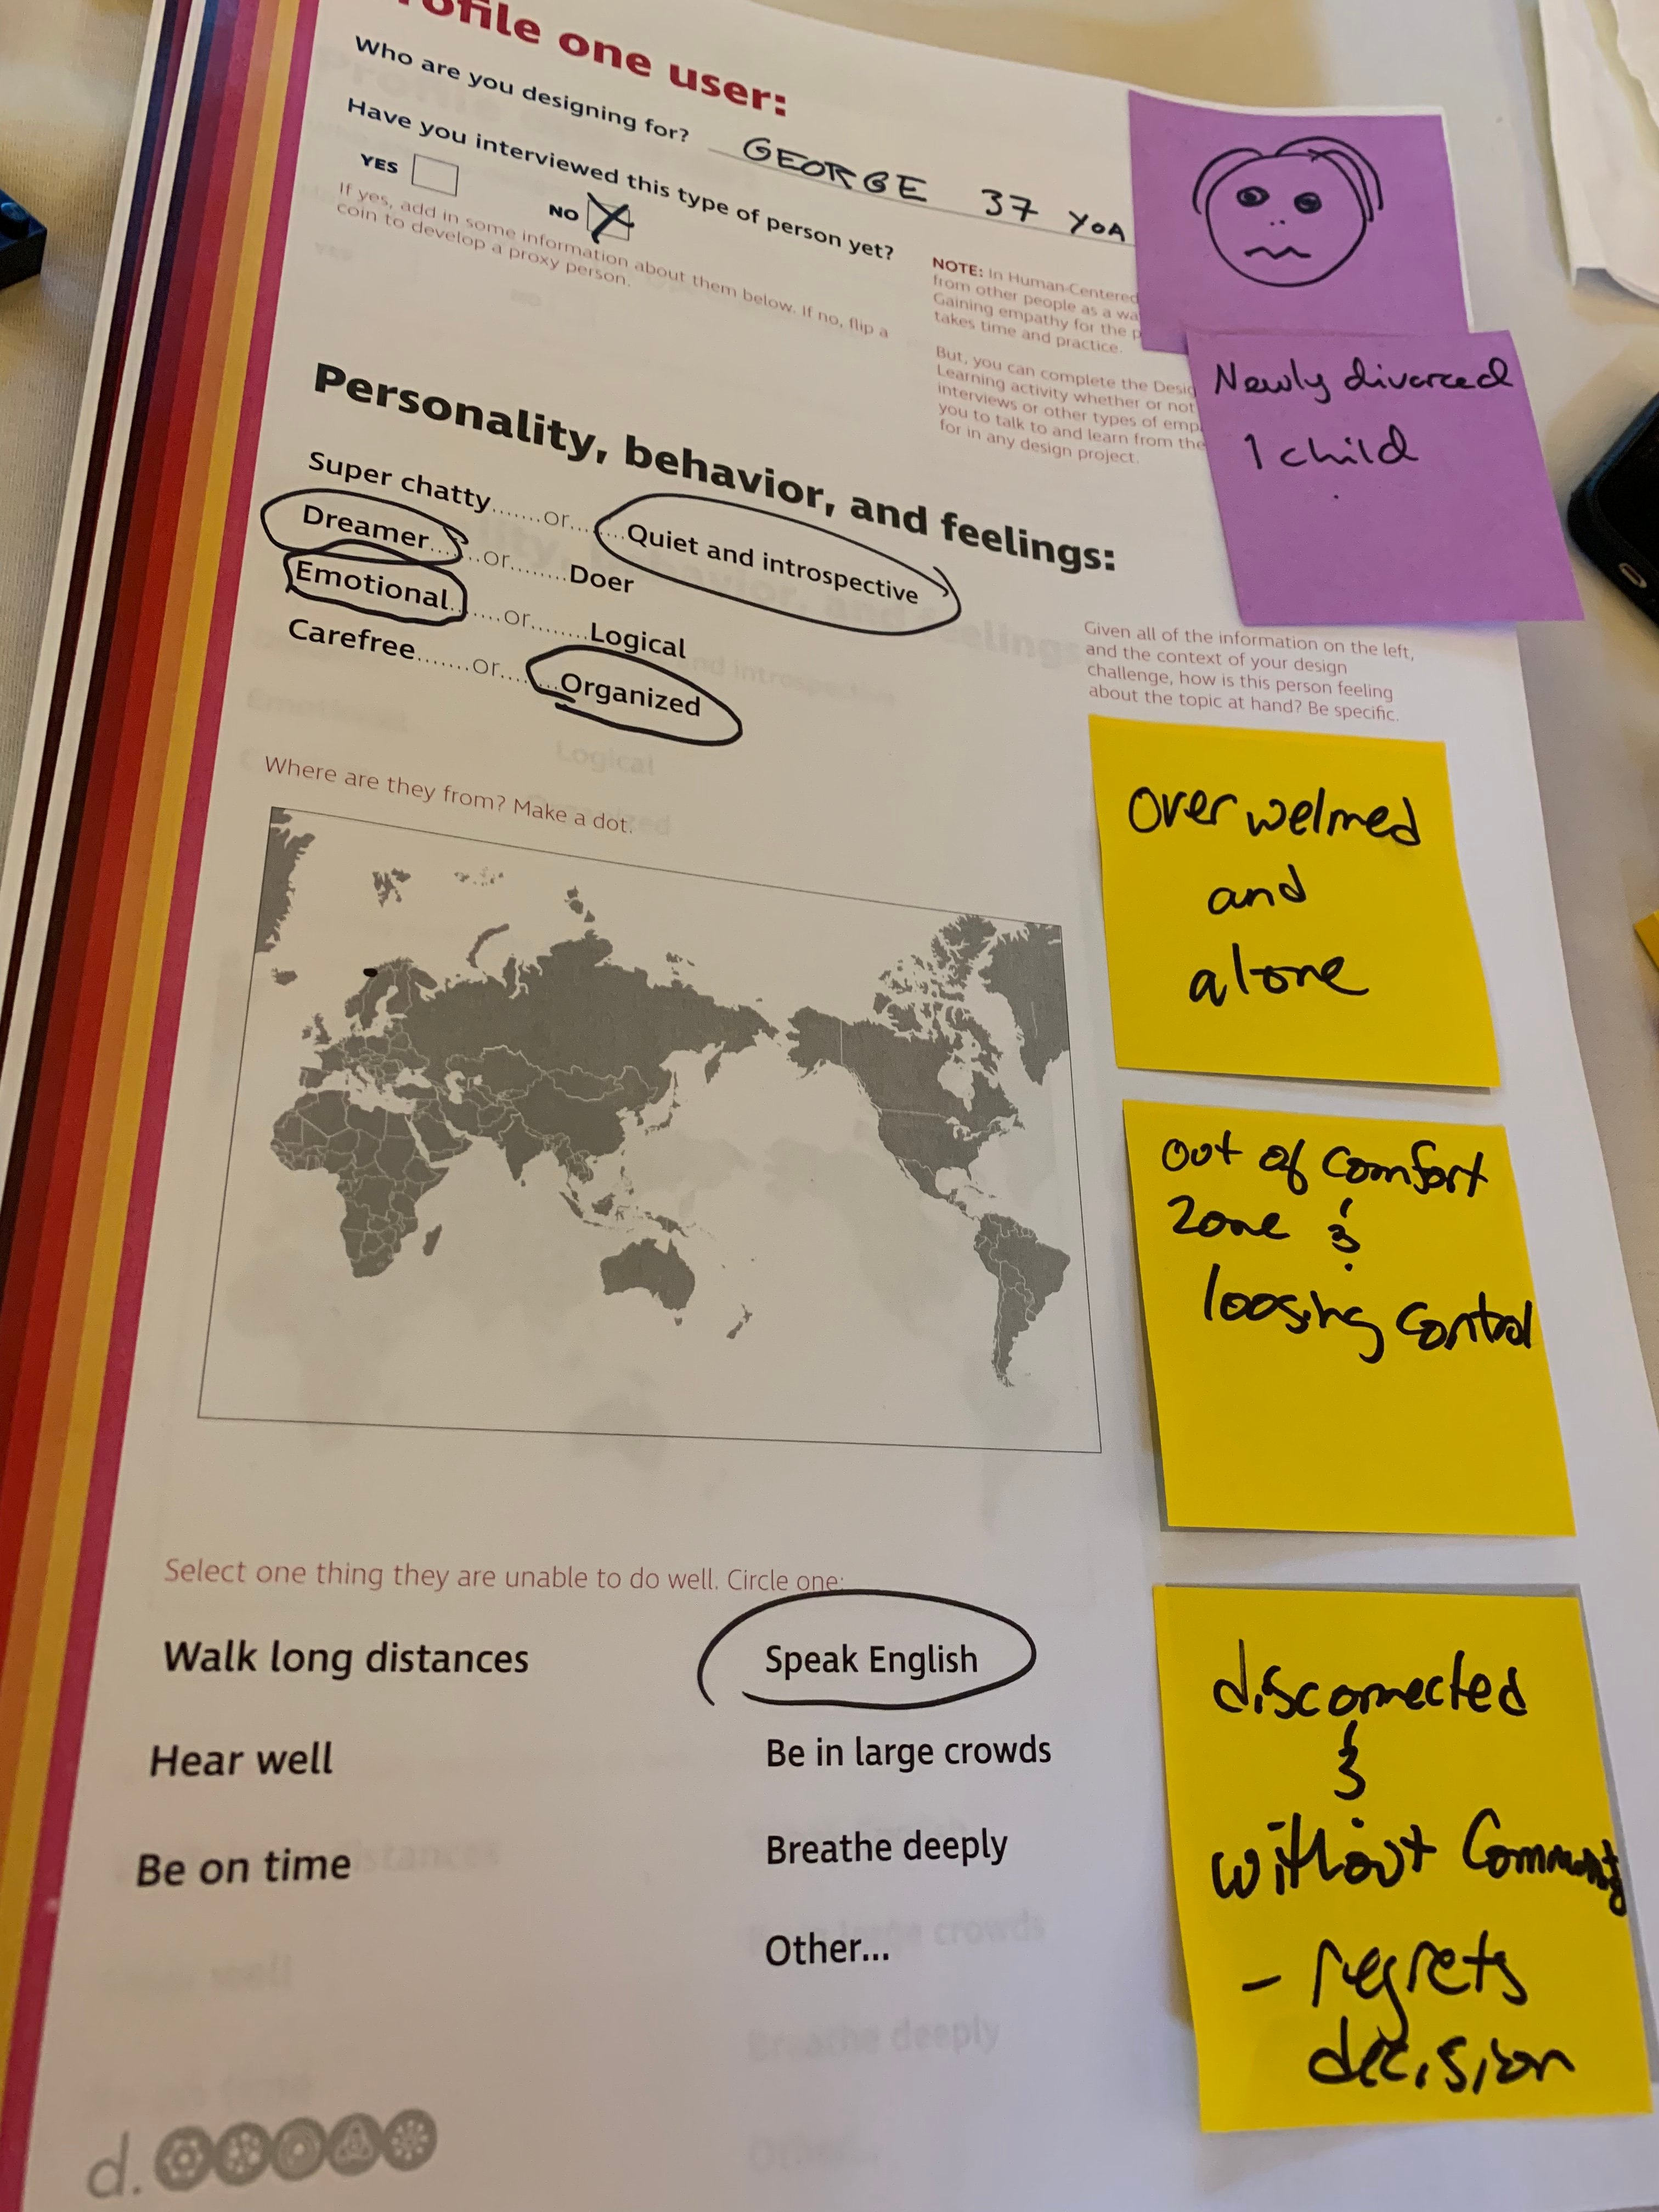 ofile one user:
Who are you designing for? GEORGE 37 YOA
Have you interviewed this type of person yet?
YES
NO
If yes, add in some information about them below. If no, flip a
coin to develop a proxy person.
NOTE: In Human-Centered
from other people as a wa
Gaining empathy for the p
takes time and practice.
But, you can complete the Desig
Learning activity whether or not
interviews or other types of emp
you to talk to and learn from the
for in any design project.
Newly divorced
1 child
Personality, behavior, and feelings:
Super chatty.......or.......Quiet and introspective
Dreamer.......or........Doer
Emotional.......or........Logical
Carefree.......or.......Organized
Given all of the information on the left,
and the context of your design
challenge, how is this person feeling
about the topic at hand? Be specific.
Over welmed
and
alone
Where are they from? Make a dot.
Out of comfort
zone &
loosing control
Select one thing they are unable to do well. Circle one:
Walk long distances
Speak English
Hear well
Be in large crowds
Be on time
Breathe deeply
Other...
disconnected
&
without Community
- regrets
decision
d.